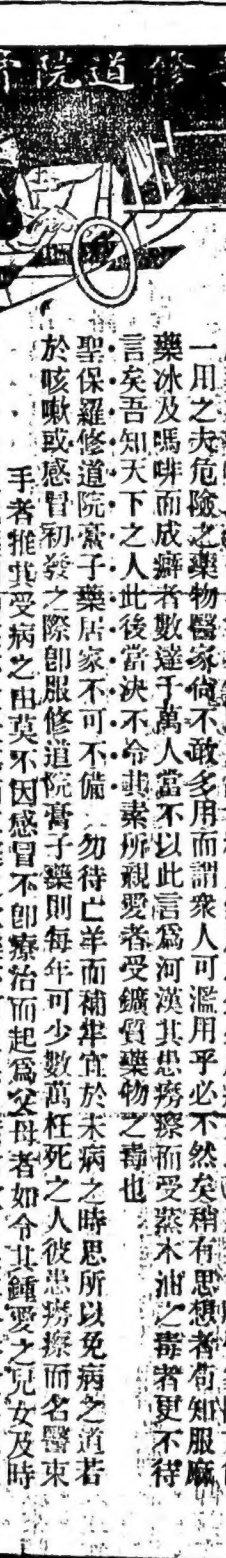 修道院
一用之夫危險之藥物醫家尙不敢多用而謂衆人可濫用乎必不然矣稍有思想者苟知服麻
藥冰及嗎啡而成癖者數達千萬人當不以此言爲河漢其患癆瘵而受蒸木油之毒者更不待
言矣吾知天下之人此後當決不令其素所親愛者受鑛質藥物之毒也
聖保羅修道院膏子藥居家不可不備 勿待亡羊而補牢宜於未病之時思所以免病之道若
於咳嗽或感冒初發之際卽服修道院膏子藥則每年可少數萬枉死之人彼患癆瘵而名醫束
手者推其受病之由莫不因感冒不卽療治而起爲父母者如令其鍾愛之兒女及時